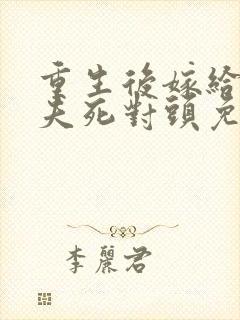 重生後嫁給
夫死對頭免
李麗君